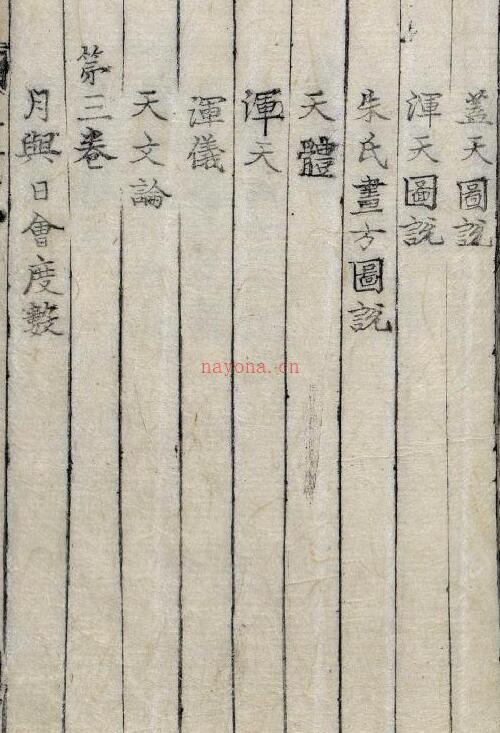 蓋天圖説
渾天圖説
朱氏畫方圖説
天體
渾天
渾儀
天文論
第三卷
月與日會度數
nayona.cn